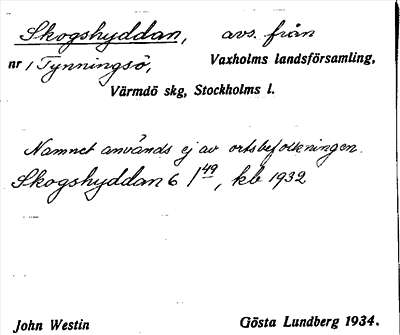 Skogshyddan, avs. från
nr 1 Tynningsö, Vaxholms landsförsamling,
Värmdö skg, Stockholms l.
Namnet används ej av ortsbefolkningen.
Skogshyddan 6 1 49, kb 1932
John Westin Gösta Lundberg 1934.